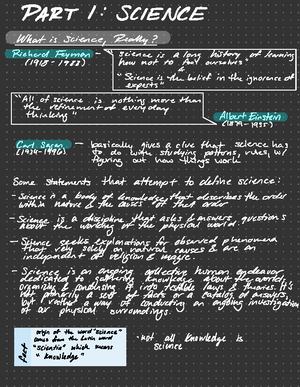 PART 1: SCIENCE
What is Science, Really?
Richard Feyman
(1918 - 1988)
- "Science is a long history of learning
how not to fool ourselves"
- "Science is the belief in the ignorance of
experts"
"All of science is nothing more than
the refinement of everyday
thinking"
Albert Einstein
(1879 - 1955)
Carl Sagan
(1934-1996)
- basically gives a clue that science has
to do with studying patterns, rules, w/
figuring out how things work
Some statements that attempt to define science:
- Science is a body of knowledge that describes the order
within nature & the causes of that order.
- Science is a discipline that asks & answers questions
about the working of the physical world.
- Science seeks explanations for observed phenomena
that rely solely on natural causes & are an
independent of religion & magic.
- Science is an ongoing collective human endeavor
dedicated to gathering knowledge about the world,
organizing & condensing it into testable laws & theories. It's
not primarily a set of facts or a catalog of answers,
but rather a way of conducting an ongoing investigation
of our physical surroundings.
Fact
origin of the word "science"
comes from the Latin word
"scientia" which means
"knowledge"
• not all knowledge is
science